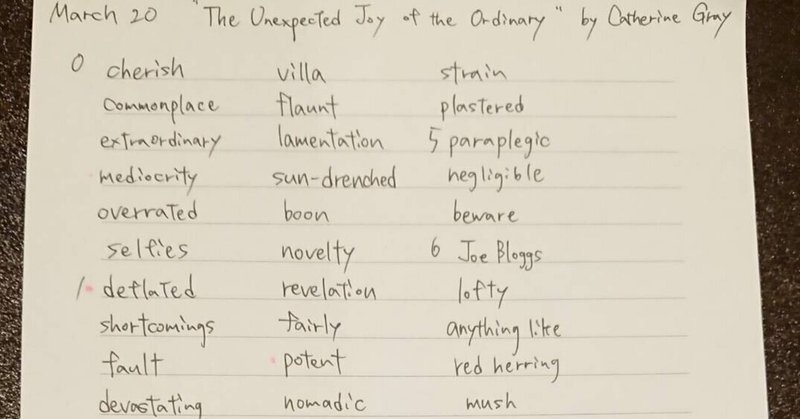 March 20 "The Unexpected Joy of the Ordinary" by Catherine Gray
0 cherish villa strain
commonplace flaunt plastered
extraordinary lamentation 5 paraplegic
mediocrity sun-drenched negligible
overrated boon beware
selfies novelty 6 Joe Bloggs
1 deflated revelation lofty
shortcomings fairly anything like
fault potent red herring
devastating nomadic mush